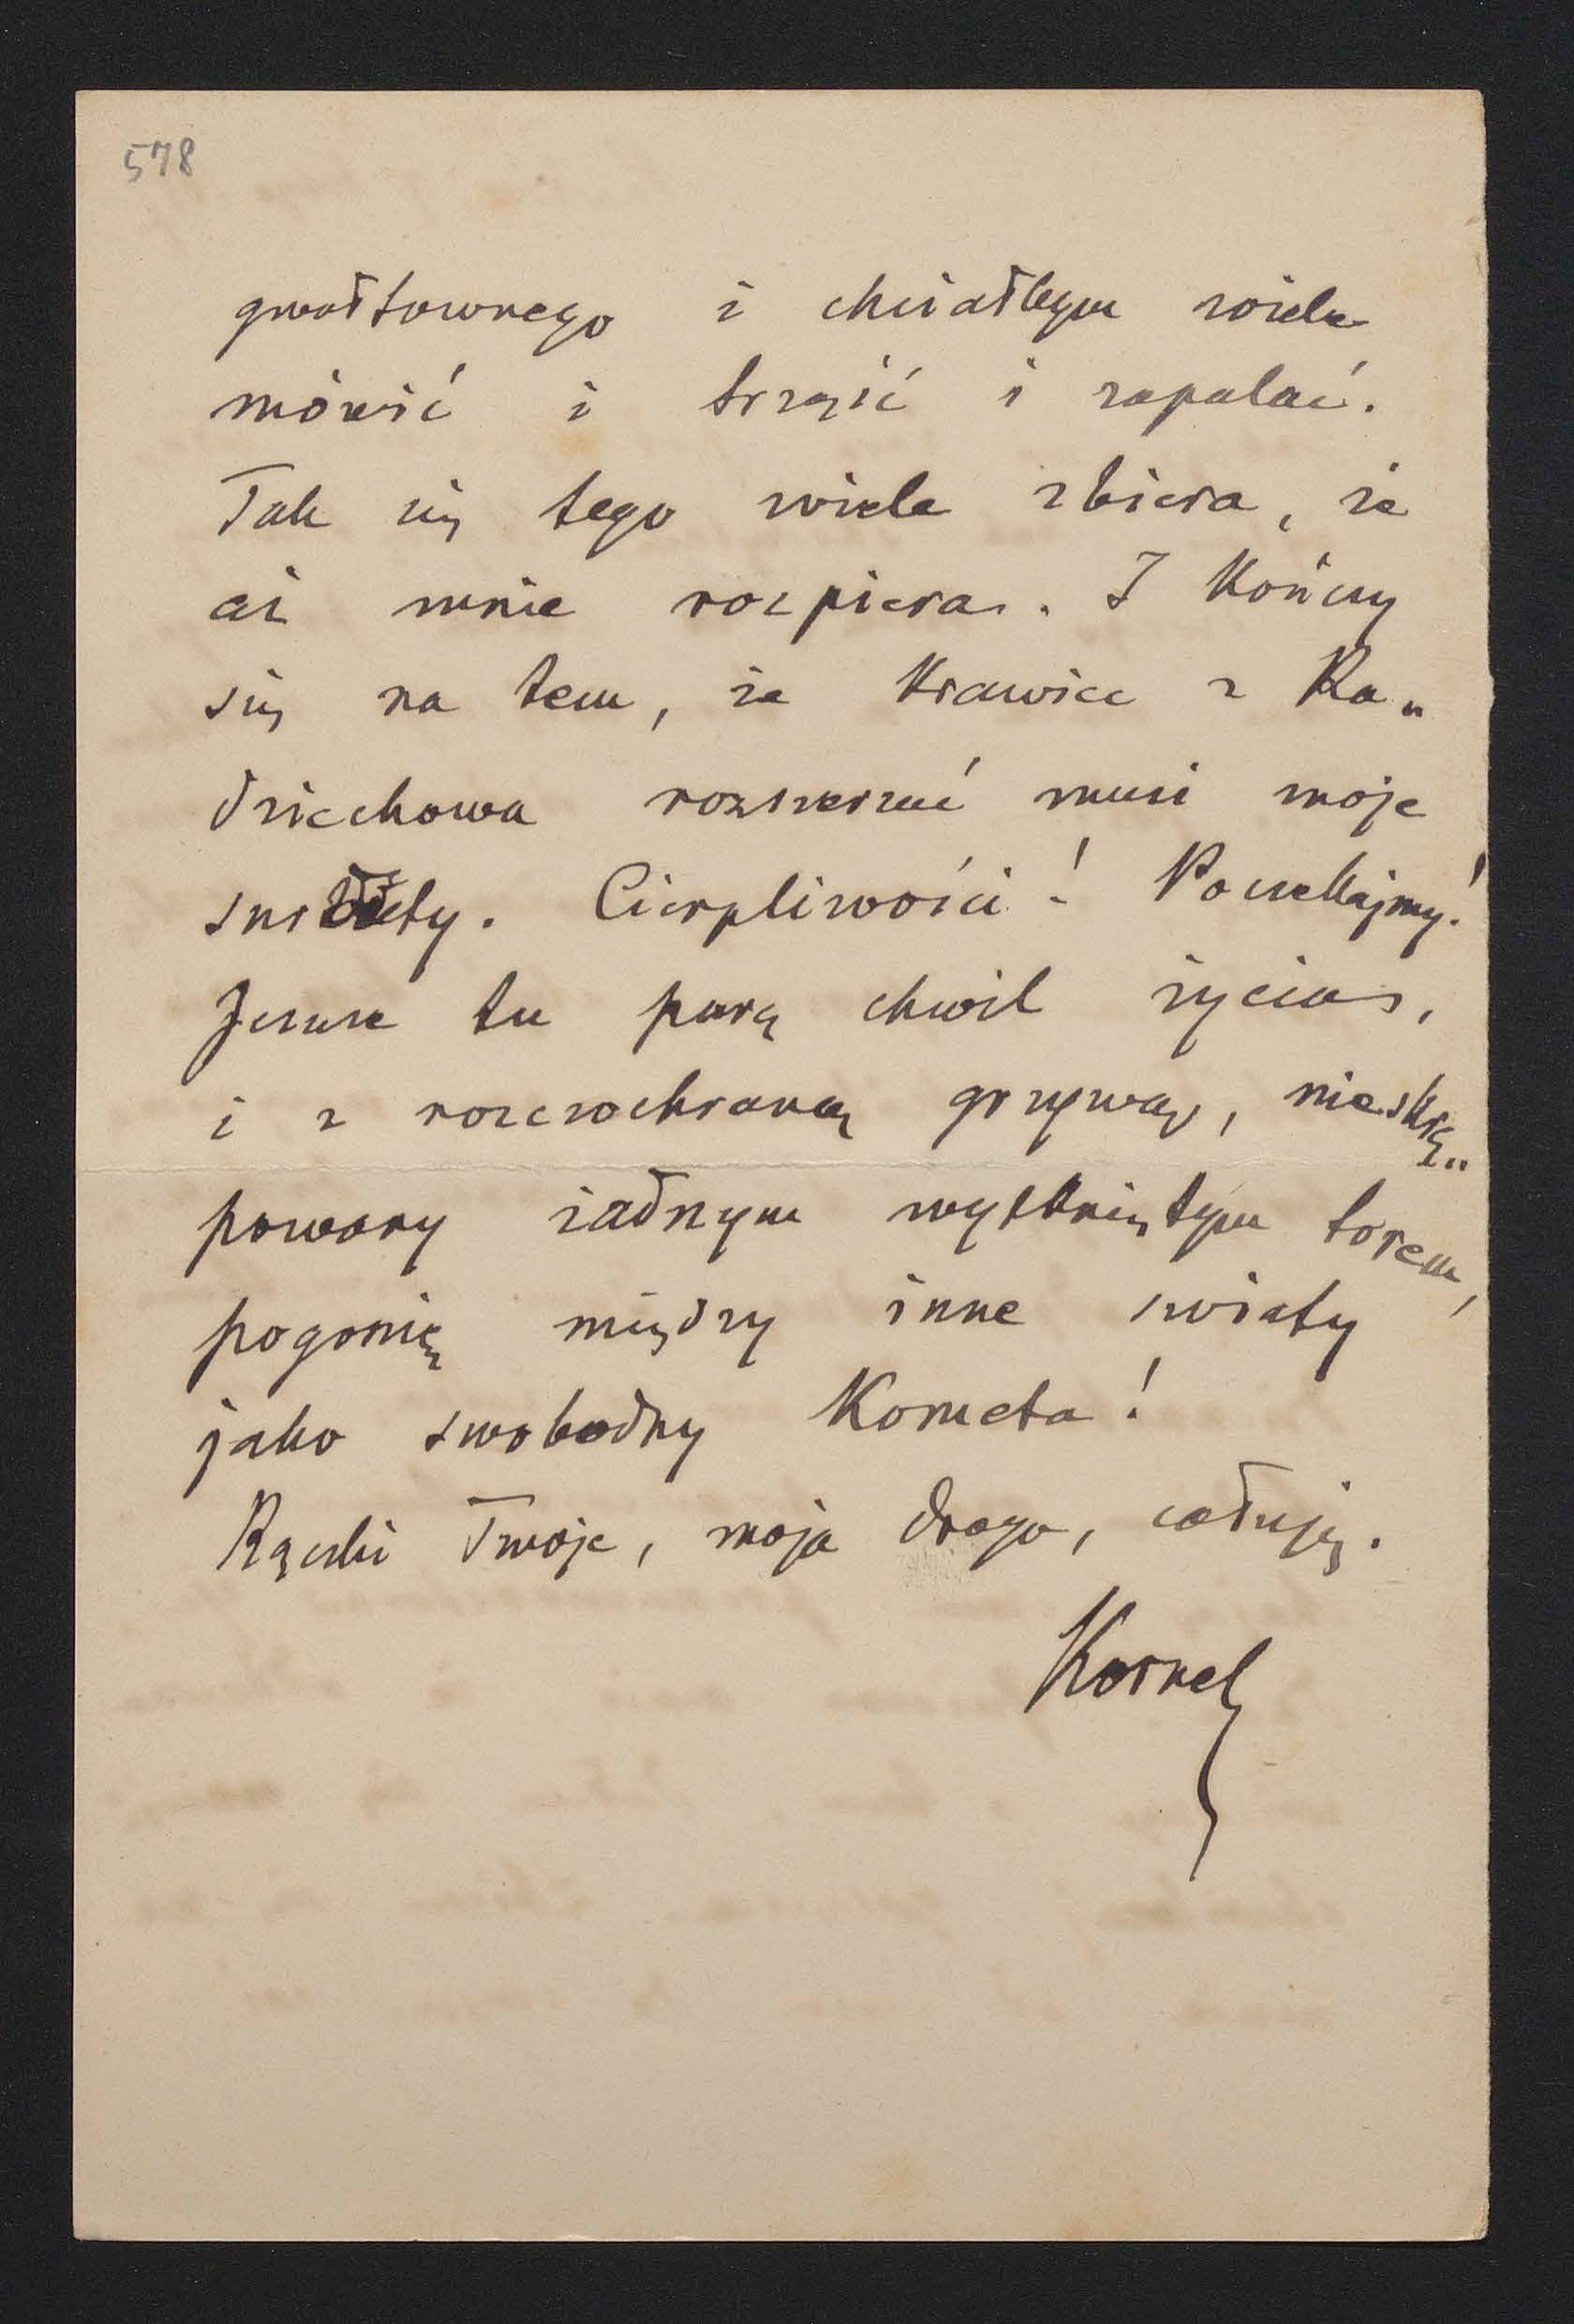 578
gwałtownego i chciałbym wiele
mówić i trząść i zapalać.
Tak się tego wiele zbiera, że
aż mnie rozpiera. I kończy
się na tem, że krawiec z Ra„
dziechowa rozszerzać musi moje
surduty. Cierpliwości! Poczekajmy!
Jeszcze tu parę chwil życia,
i z rozczochraną grzywą, nieskrę„
powany żadnym wytkniętym torem,
pogonię między inne światy
jako swobodny Kometa!
Rączki Twoje, moja droga, całuję.
Kornel